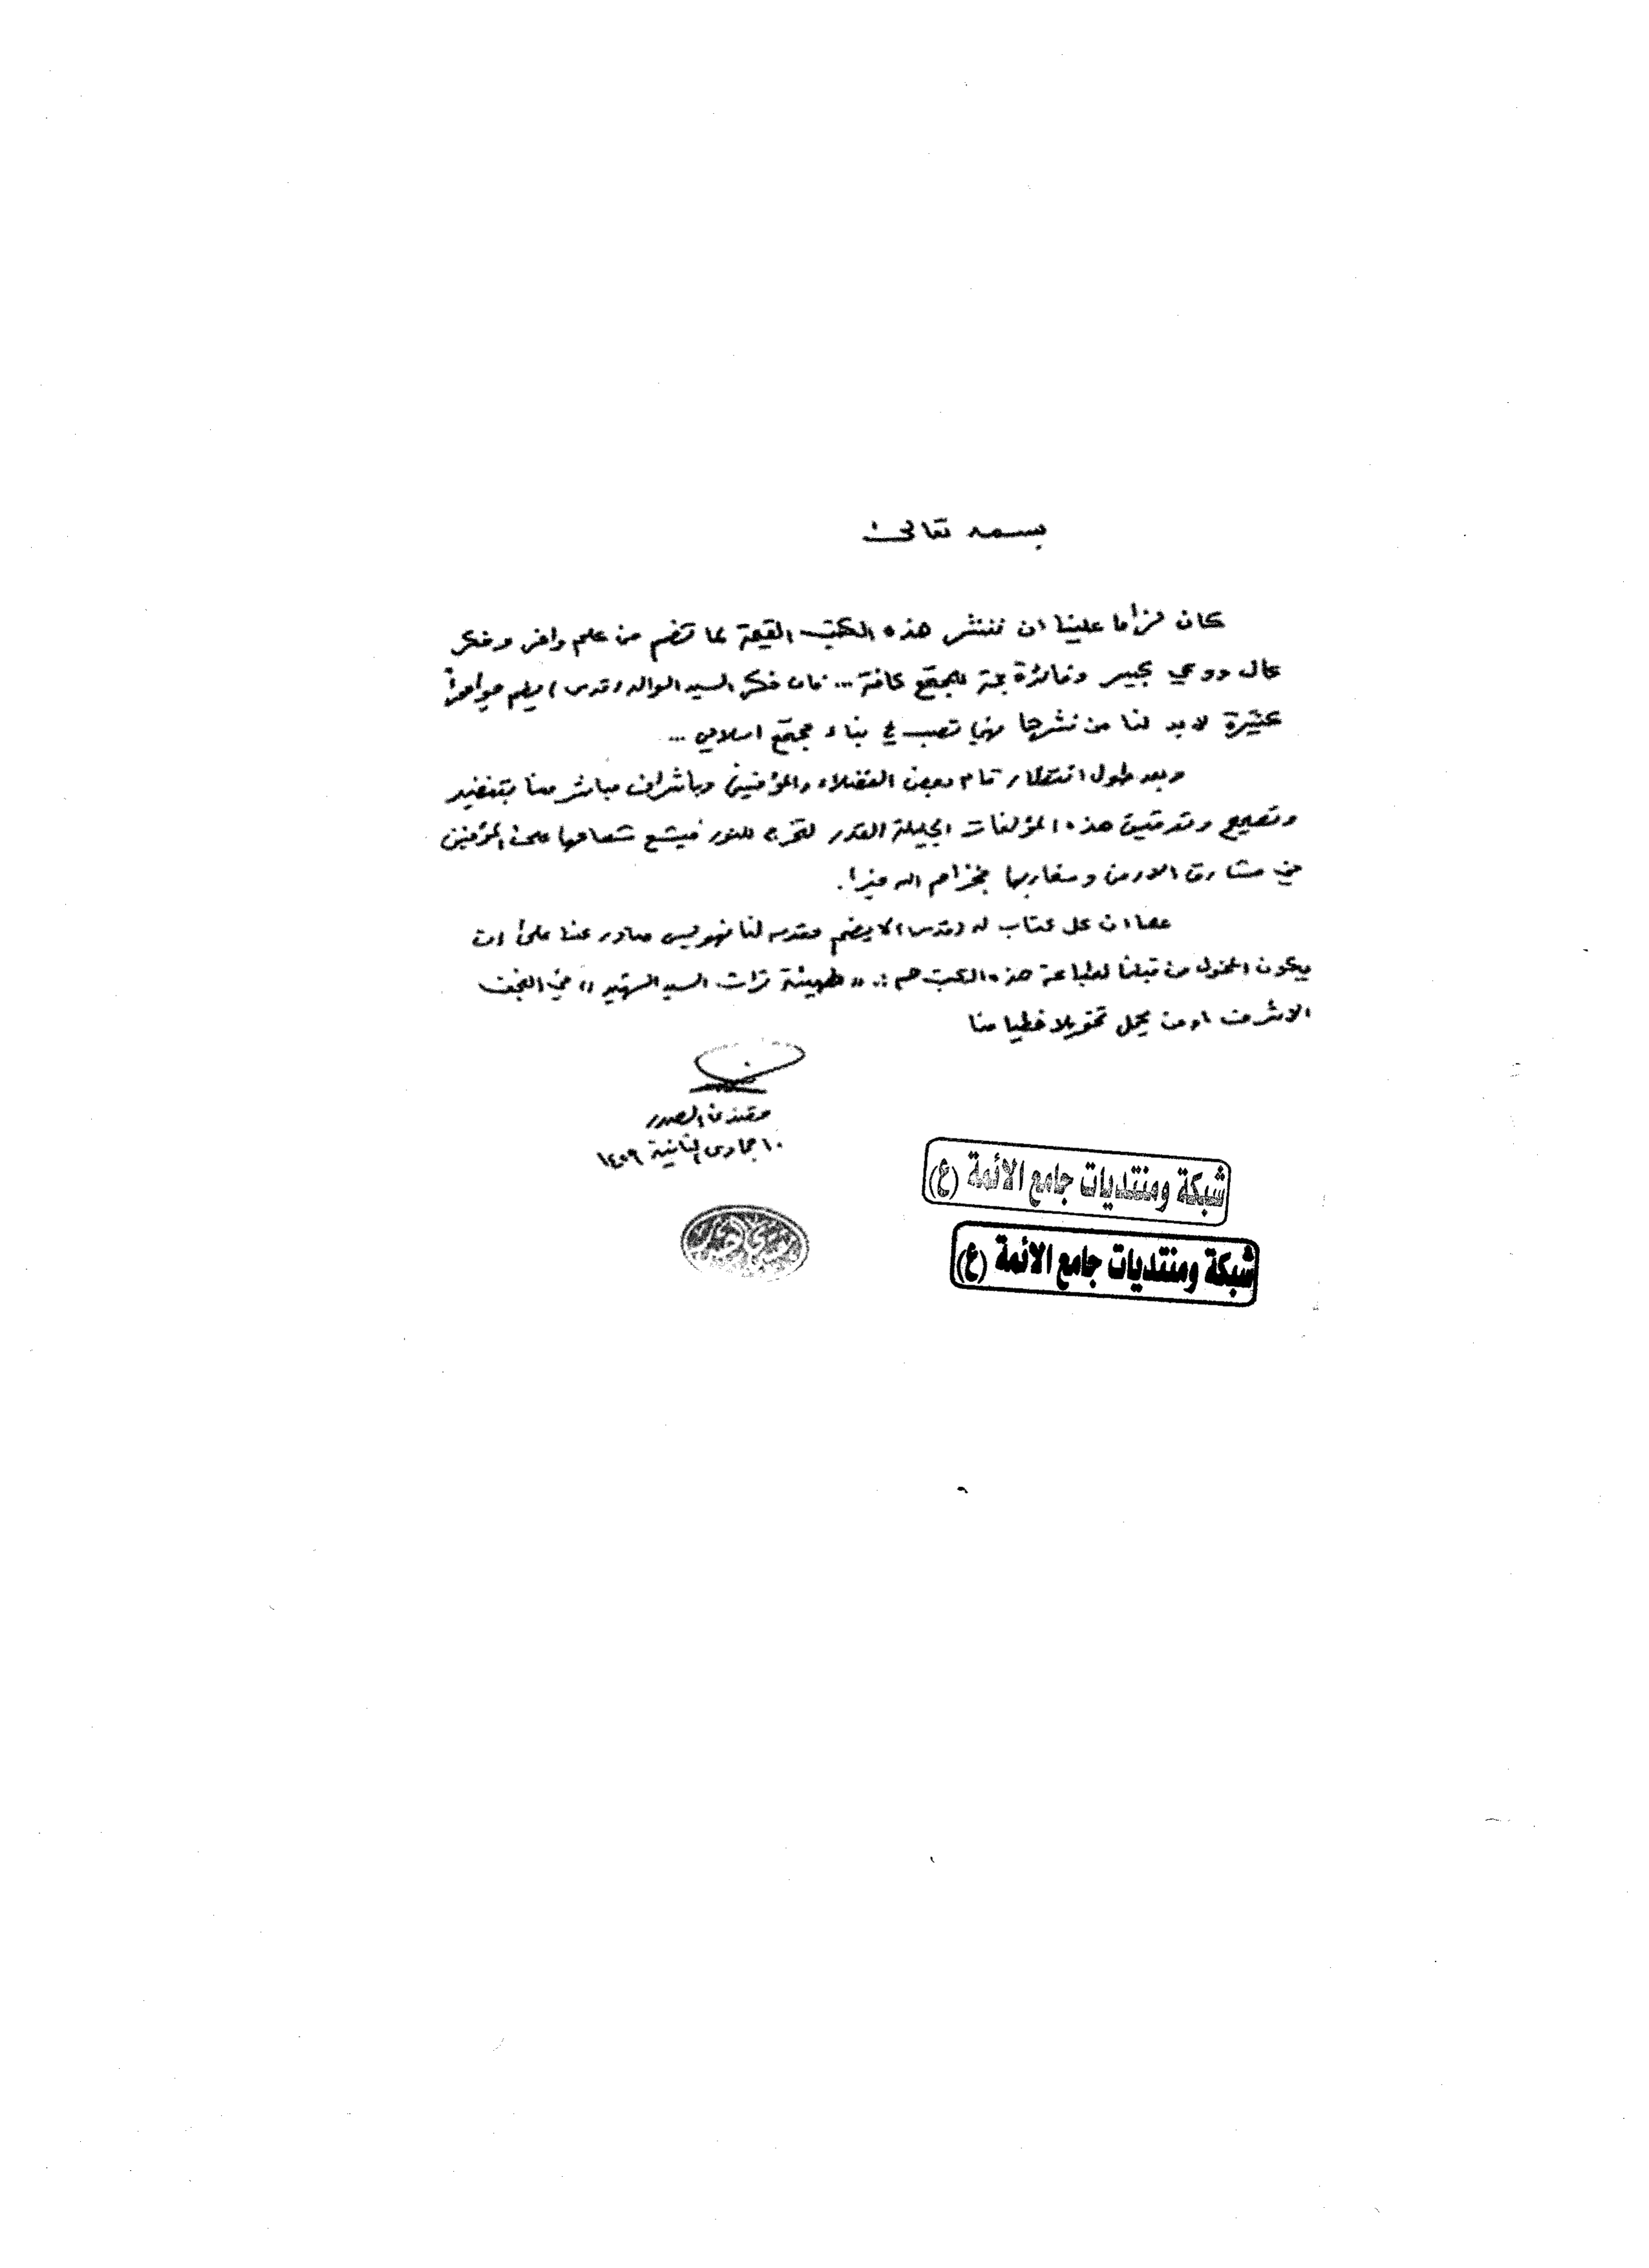 بسمه تعالى
كان لزاما علينا ان ننشر هذه الكتب القيمة لما تضم من علم وافر وفكر
عال ووعي كبير وفائدة جمة للمجتمع كافة ... فان فكر السيد الوالد (قدس) يضم جواهراً
كثيرة لا بد لنا من نشرها فهي تصب في بناء مجتمع اسلامي ...
وبعد طول انتظار قام بعض الفضلاء والمؤمنين وباشراف مباشر منا بتنضيد
وتصحيح وتدقيق هذه المؤلفات الجليلة القدر لتخرج للنور فيشع شعاعها على المؤمنين
في مشارق الارض ومغاربها فجزاهم الله خيرا.
علما ان كل كتاب له (قدس) لا يضم مقدمه لنا فهو ليس صادر عنا على ان
يكون المخول من قبلنا لطباعة هذه الكتب هم : «هيئة تراث السيد الشهيد» في النجف
الاشرف او من يحمل تخويلا خطيا منا
مقتدى الصدر
١٠ جمادى الثانية ١٤٢٩
شبكة ومنتديات جامع الائمة (ع)
شبكة ومنتديات جامع الائمة (ع)